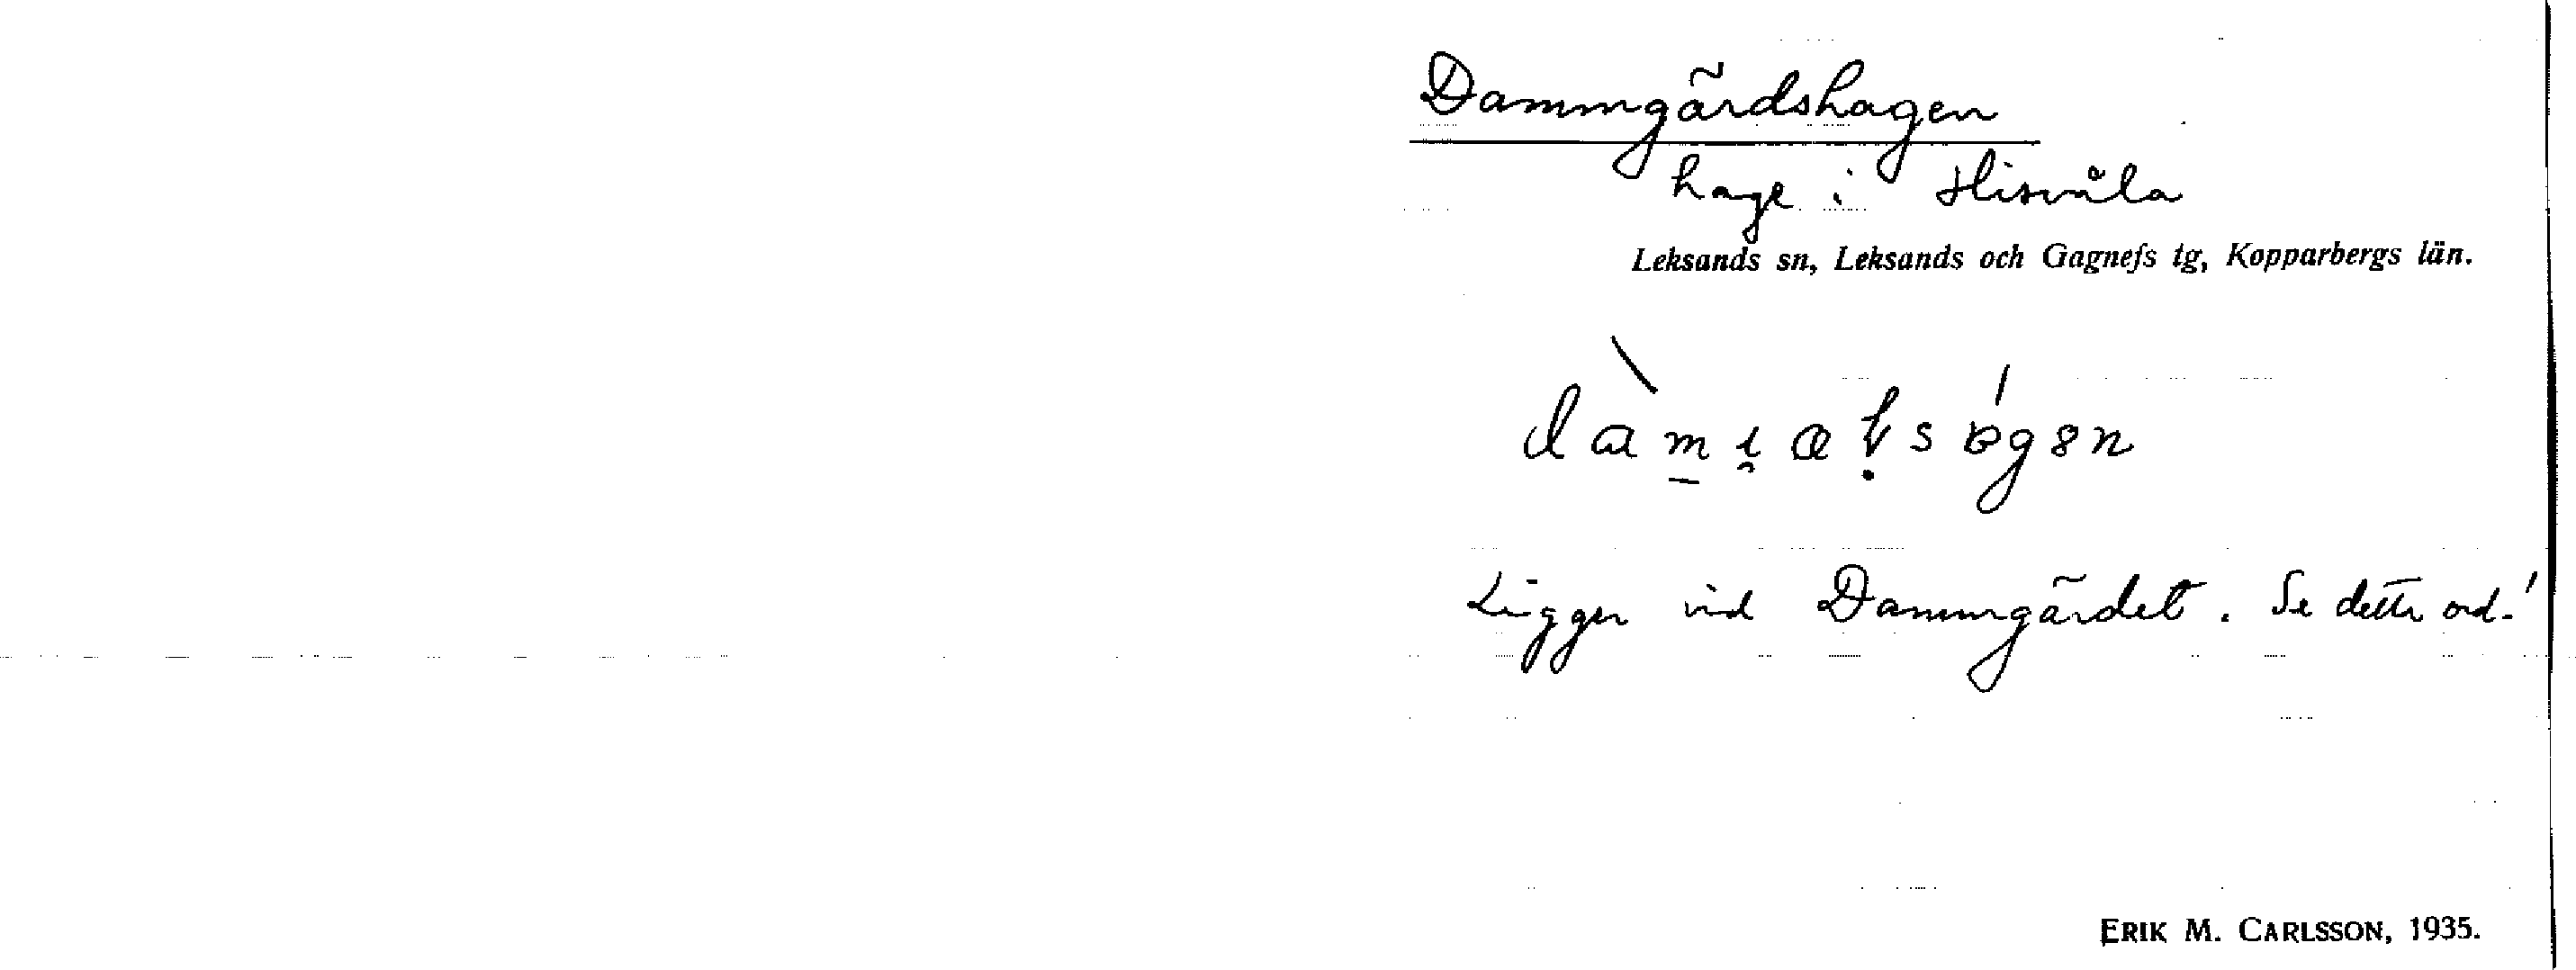 Dammgärdshagen
hage i Hisvåla
Leksands sn, Leksands och Gagnefs tg, Kopparbergs län.
Ligger vid Dammgärdet. Se detta ord!
ERIK M. CARLSSON, 1935.